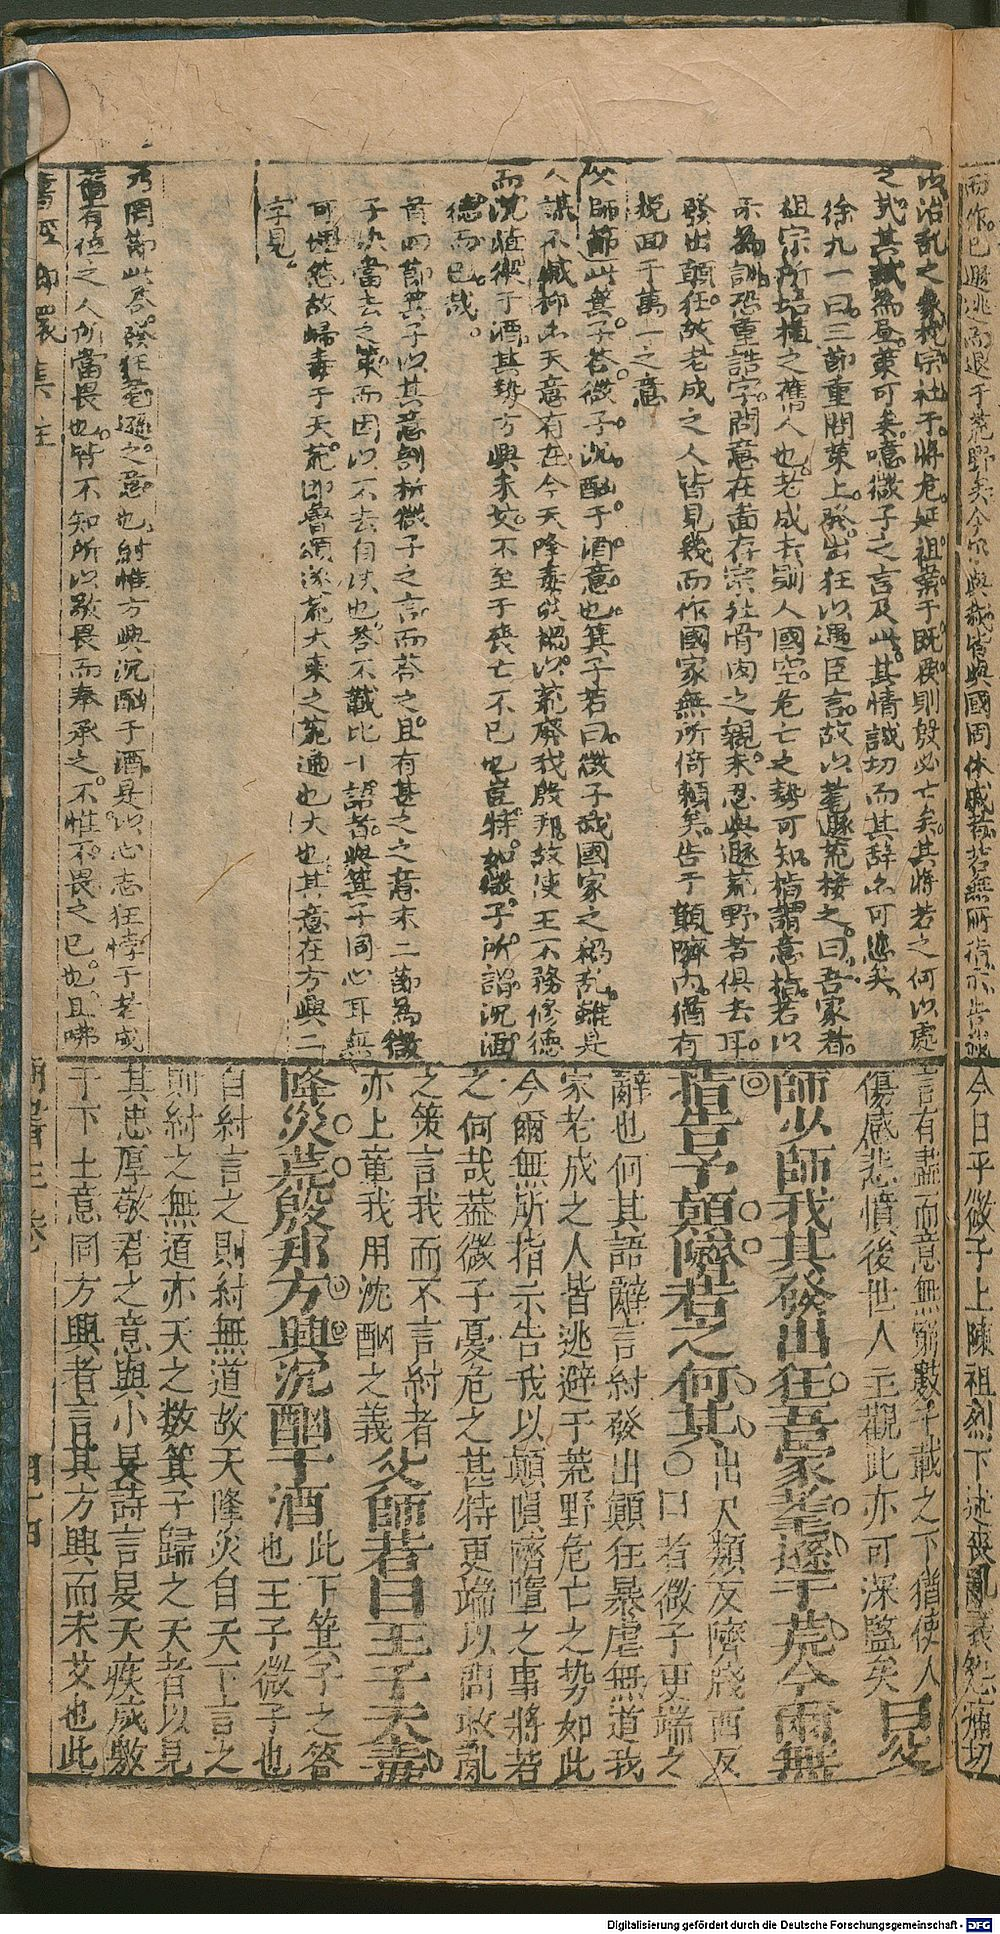 以治乱之象我宗社不將危延祖業于既墜則殷必亡矣其將若之何以處
之哉其誠為昼策可矣噫微子之言及此其情誠切而其辞亦可悲矣
徐九一曰三節重問策上発出狂以遇臣言故以耄遜荒接之曰吾家者
祖宗所培植之舊人也老成去則人國空危亡之勢可知指謂意指若以
示為訓恐重誥字問意在面在宗社骨肉之親未忍與遜荒野者俱去耳
發出顛狂故老成之人皆見幾而作國家無所倚賴矣告于顛隮內猶有
挽回于萬一之意
父師節此箕子荅微子沉酗于酒意也箕子若曰微子我國家之禍乱雖是
人謀不臧抑亦天意有在今天降毒災禍以荒廢我殷邦故使王不務修德
而沉湎於于酒其勢方興未艾不至于喪亡不已也豈特如微子所謂沉酒
德而已哉
首四節箕子以其意剖析微子之言而荅之且有甚之之意末二節為微
子決當去之策而因以不去自決也荅不載比干語者與箕子同心耳無
可埋怨故歸毒于天荒即魯頌遂荒大東之荒通也大也其意在方興二
字見
乃罔節此荅發狂耄遜之意也紂惟方興沉酗于酒是以心志狂悖于老成
舊有位之人所當畏也皆不知所以敬畏而奉承之不惟不畏之已也且咈
言有盡而意無窮數千載之下猶使人
傷感悲憤後世人主觀此亦可深鑒矣 曰父
師少師我其發出狂吾家耄遜于荒今爾無
指告予顛隮若之何其 出尺類反隮牋西反
〇曰者微子更端之
辭也何其語辭言紂發出顛狂暴虐無道我
家老成之人皆逃避于荒野危亡之势如此
今爾無所指示告我以顛隕隮墮之事將若
之何哉蓋微子憂危之甚特更端以問救亂
之策言我而不言紂者
亦上章我用沈酗之義 父師若曰王子天毒
降災荒殷邦方興沉酗于酒 此下箕子之答
也王子微子也
自紂言之則紂無道故天降災自天下言之
則紂之無道亦天之数箕子歸之天者以見
其忠厚敬君之意與小旻詩言旻天疾威敷
于下土意同方興者言其方興而未艾也此
書經
四十四
Digitalisierung gefördert durch die Deutsche Forschungsgemeinschaft - DFG